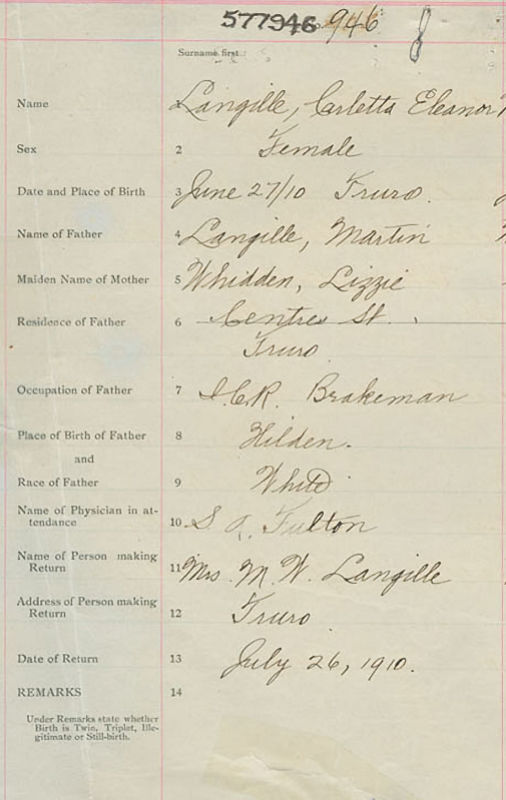 577946 946
Surname first
Name Langille, Carletta Eleanor
Sex 2 Female
Date and Place of Birth 3 June 27/10 Truro.
Name of Father 4 Langille, Martin
Maiden Name of Mother 5 Whidden, Lizzie
Residence of Father 6 Centre St.
Truro
Occupation of Father 7 I.C.R. Brakeman
Place of Birth of Father 8 Hilden.
and
Race of Father 9 White
Name of Physician in at-
tendance 10 S A. Fulton
Name of Person making
Return 11 Mrs. M. W. Langille
Address of Person making
Return 12 Truro
Date of Return 13 July 26, 1910.
REMARKS 14
Under Remarks state whether
Birth is Twin, Triplet, Ille-
gitimate or Still-birth.